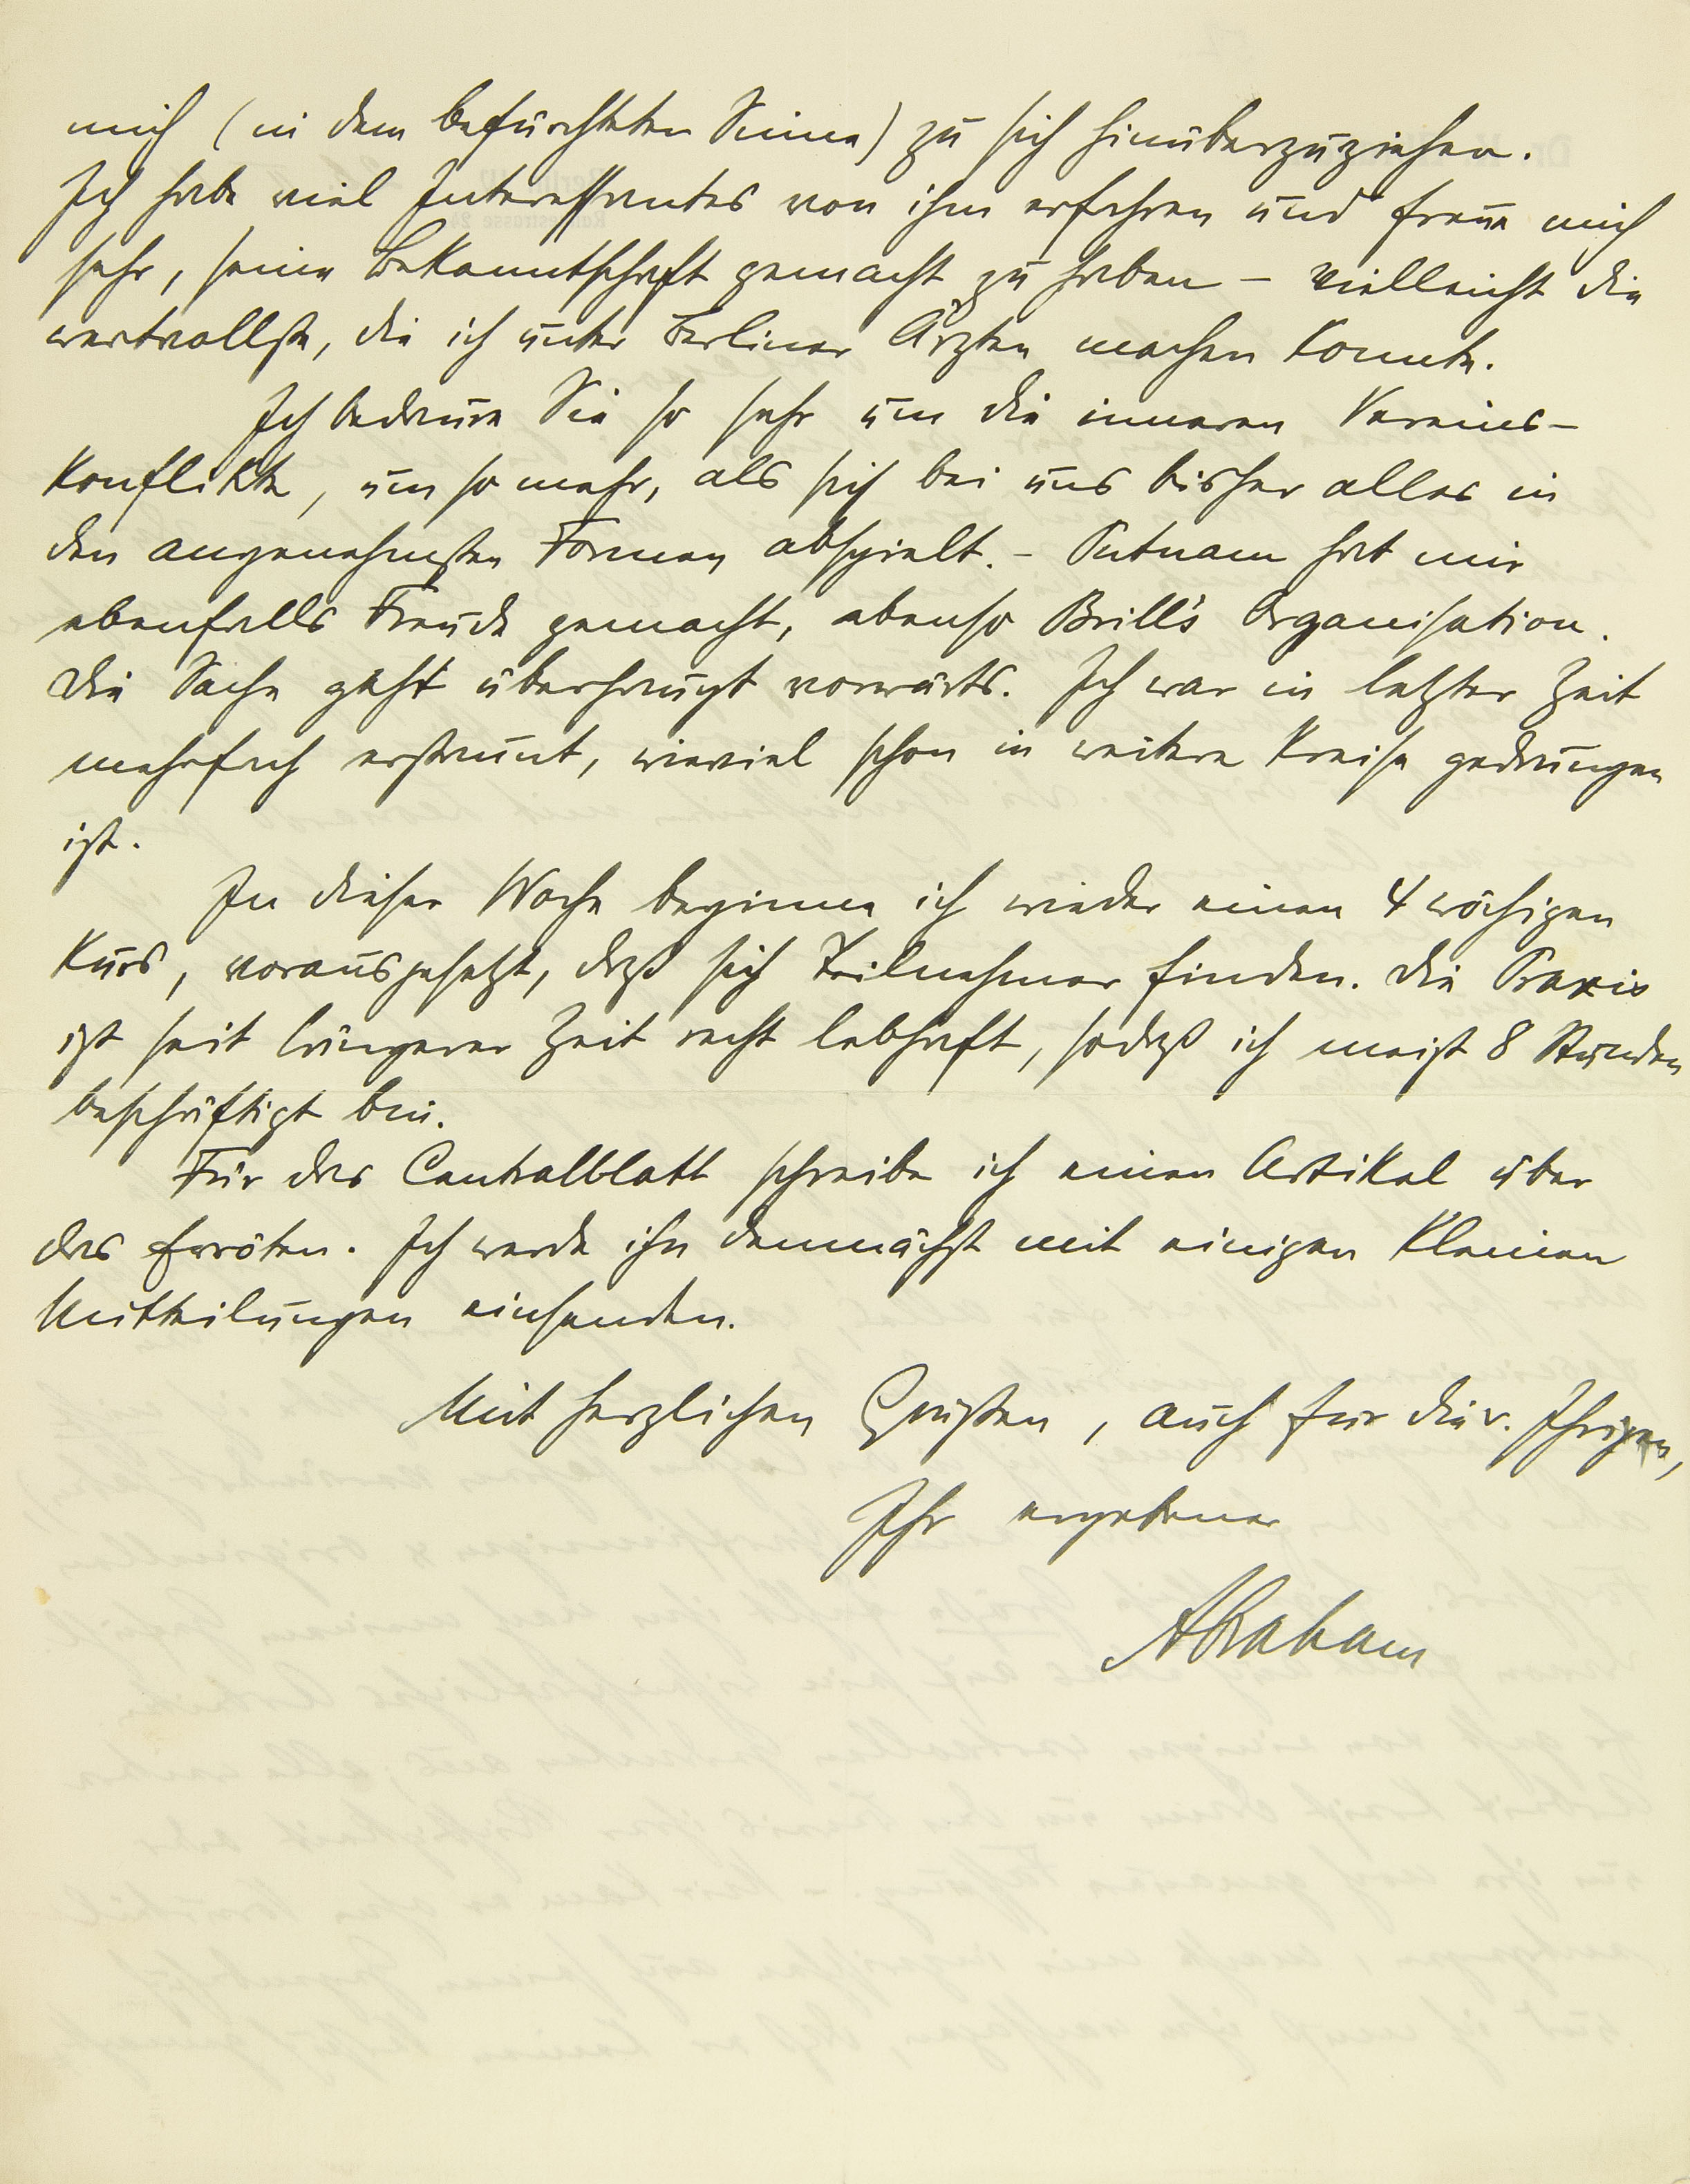 mich (in dem befürchteten Sinne) zu sich hinüberzuziehen.
Ich habe viel Interessantes von ihm erfahren und freue mich
sehr, seine Bekanntschaft gemacht zu haben – vielleicht die
wertvollste, die ich unter Berliner Ärzten machen konnte.
Ich bedaure Sie so sehr um die inneren Vereins-
Konflikte, um so mehr, als sich bei uns bisher alles in
den angenehmsten Formen abspielt. – Putnam hat mir
ebenfalls Freude gemacht, ebenso Brill's Organisation.
Die Sache geht überhaupt vorwärts. Ich war in letzter Zeit
mehrfach erstaunt, wieviel schon in weitere Kreise gedrungen
ist.
In dieser Woche beginne ich wieder einen 4 wöchigen
Kurs, vorausgesetzt, daß sich Teilnehmer finden. Die Praxis
ist seit längerer Zeit recht lebhaft, sodaß ich meist 8 Stunden
beschäftigt bin.
Für das Centralblatt schreibe ich einen Artikel über
das Erröten. Ich werde ihn demnächst mit einigen kleinen
Mitteilungen einsenden.
Mit herzlichen Grüßen, auch für die v. Ihrigen,
Ihr ergebener
Abraham